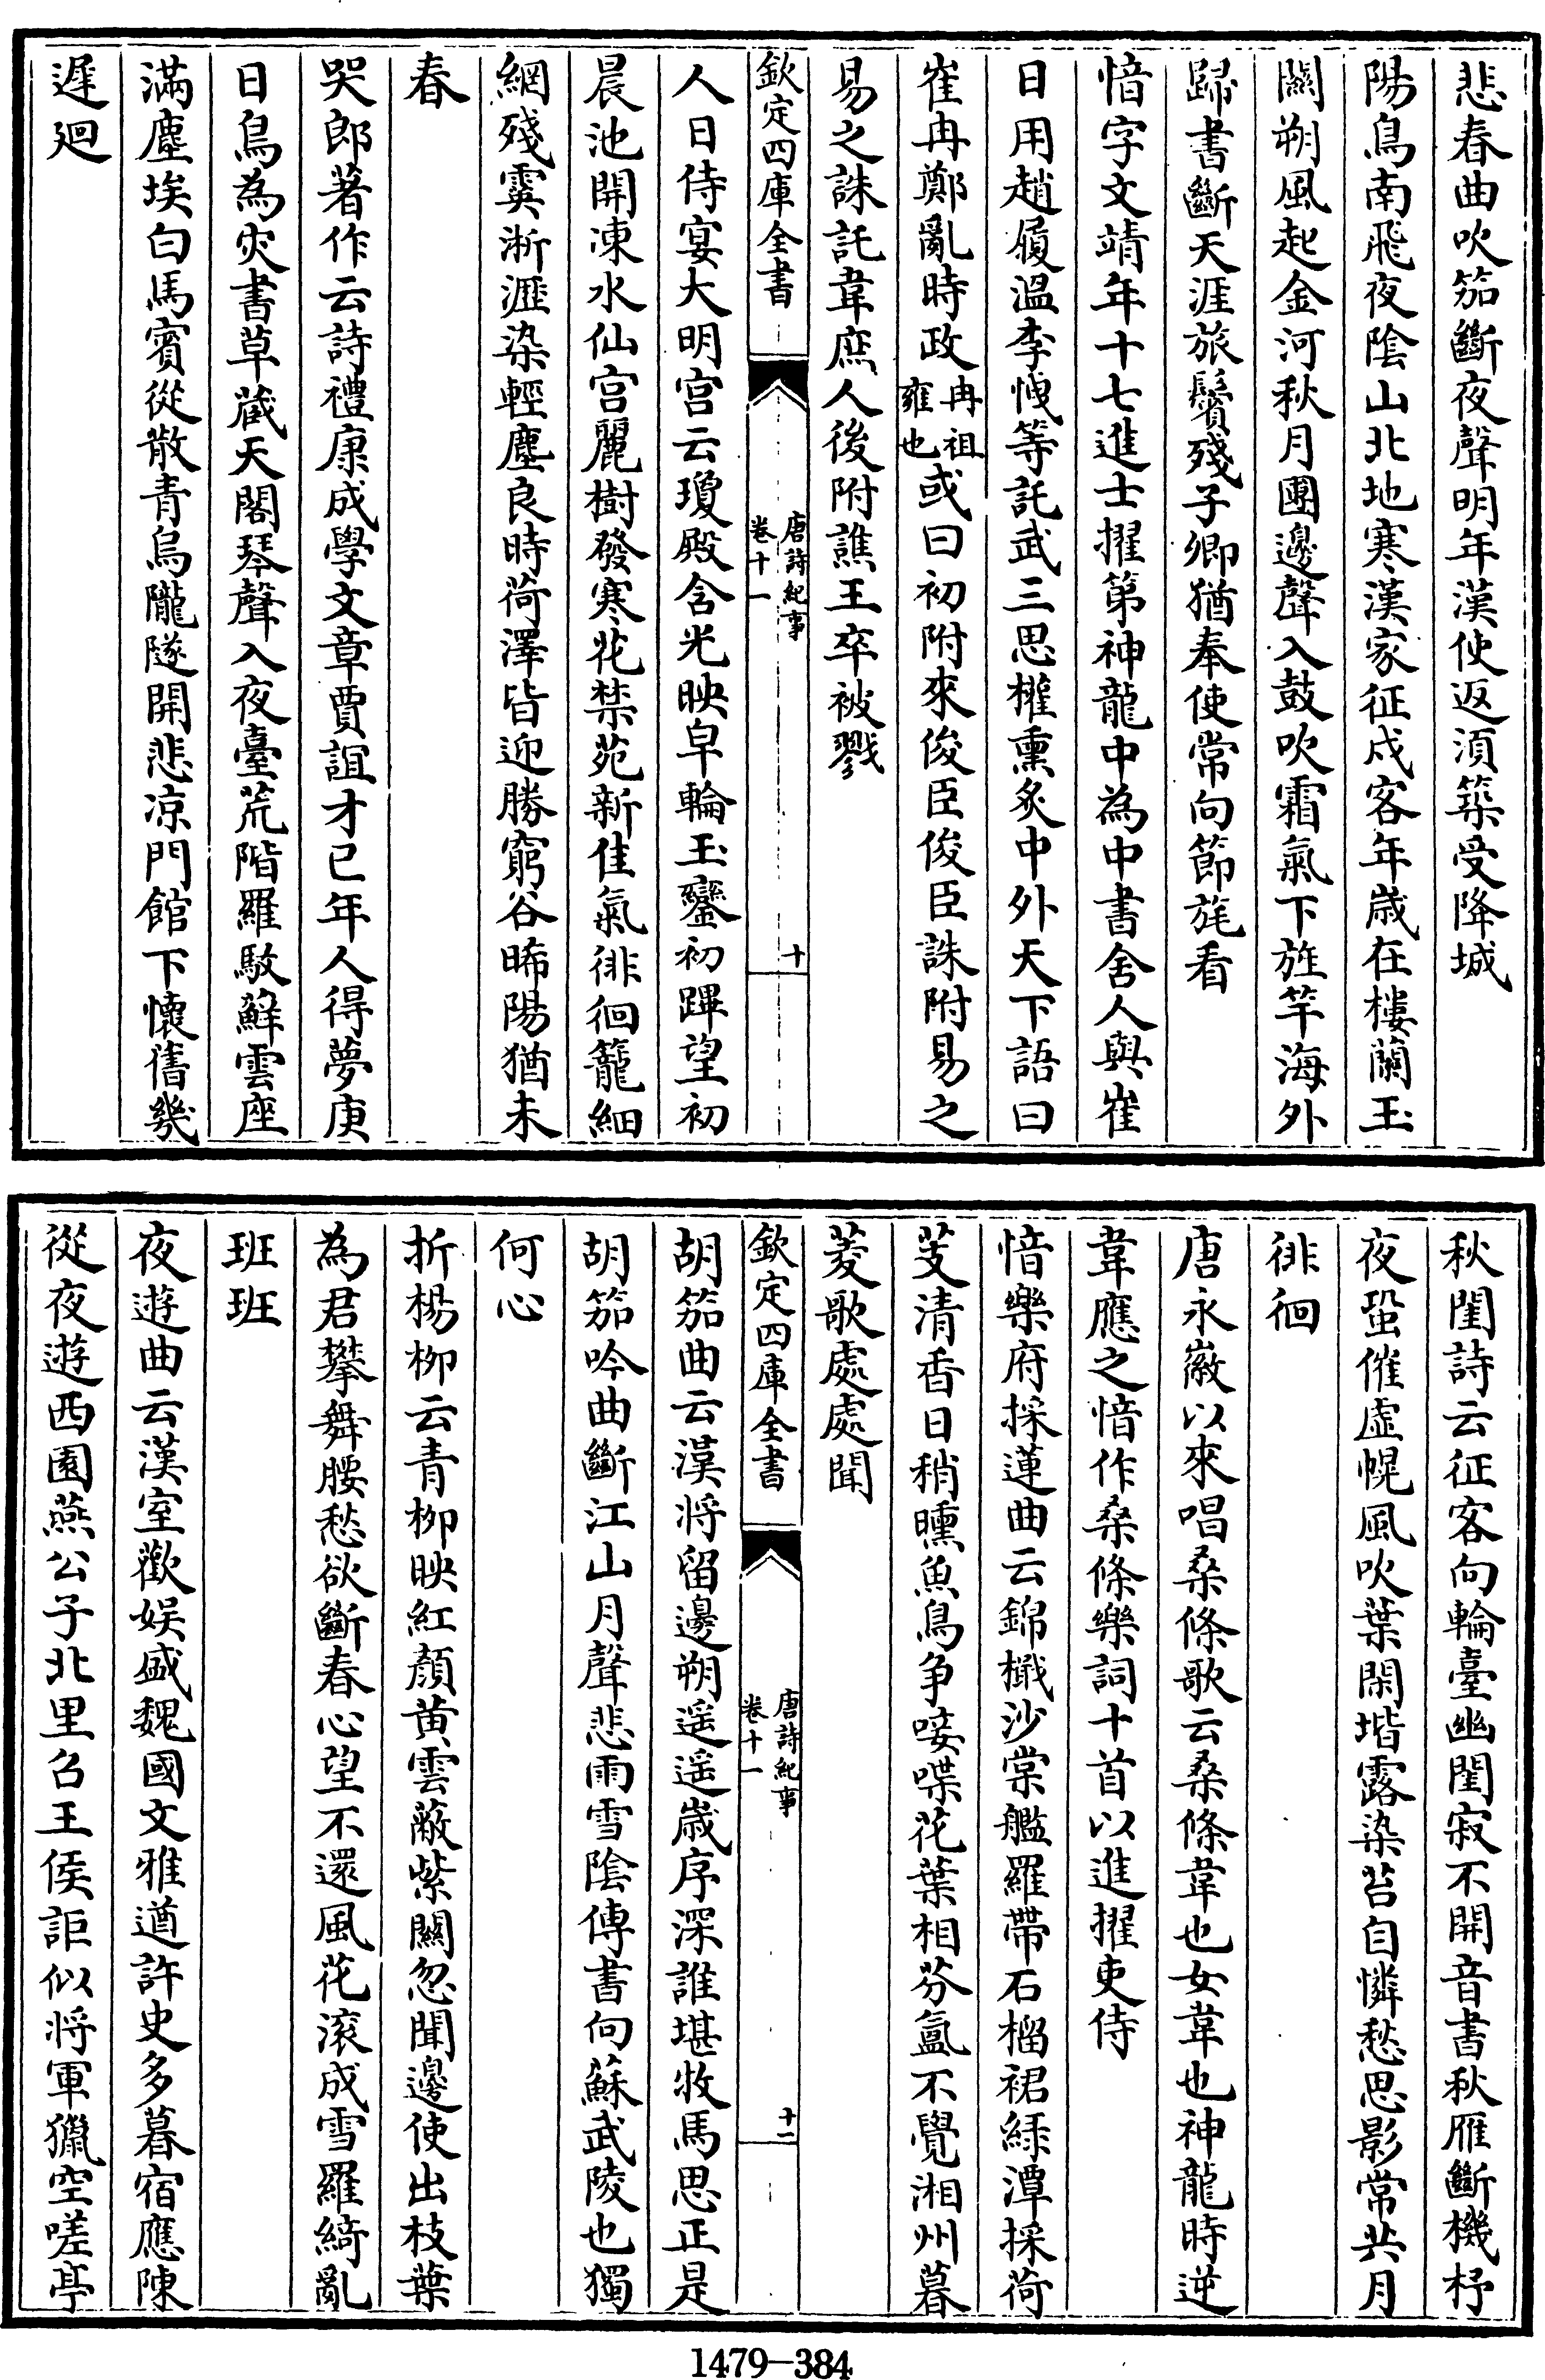 悲春曲吹笳斷夜聲明年漢使返須築受降城
陽鳥南飛夜陰山北地寒漢家征戍客年歲在樓蘭玉
關朔風起金河秋月團邊聲入鼓吹霜氣下旌竿海外
歸書斷天涯旅鬢殘子卿猶奉使常向節旄看
愔字文靖年十七進士擢第神龍中為中書舍人與崔
日用趙履溫李悛等託武三思權熏炙中外天下語曰
崔冉鄭亂時政冉祖雍也或曰初附來俊臣俊臣誅附易之
易之誅託韋庶人後附譙王卒被戮
欽定四庫全書
唐詩紀事
卷十一
十
人日侍宴大明宮云瓊殿含光映早輪玉鑾初蹕望初
晨池開凍水仙宮麗樹發寒花禁苑新佳氣徘徊籠細
網殘霙淅瀝染輕塵良時荷澤皆迎勝窮谷晞陽猶未
春
哭郎著作云詩禮康成學文章賈誼才已年人得夢庚
日鳥為灾書草藏天閣琴聲入夜臺荒階羅駮蘚雲座
滿塵埃白馬賓從散青烏隴隧開悲凉門館下懷舊幾
遲廻
秋閨詩云征客向輪臺幽閨寂不開音書秋雁斷機杼
夜蛩催虛幌風吹葉閑堦露染苔自憐愁思影常共月
徘徊
唐永徽以來唱桑條歌云桑條韋也女韋也神龍時逆
韋應之愔作桑條樂詞十首以進擢吏侍
愔樂府採蓮曲云錦檝沙棠艦羅帶石榴裙綠潭採荷
芰清香日稍曛魚鳥爭唼喋花葉相芬氳不覺湘州暮
菱歌處處聞
欽定四庫全書
唐詩紀事
卷十一
十一
胡笳曲云漢將留邊朔遥遥歲序深誰堪牧馬思正是
胡笳吟曲斷江山月聲悲雨雪陰傳書向蘇武陵也獨
何心
折楊柳云青柳映紅顏黃雲蔽紫關忽聞邊使出枝葉
為君攀舞腰愁欲斷春心望不還風花滚成雪羅綺亂
班班
夜遊曲云漢室歡娛盛魏國文雅遒許史多暮宿應陳
從夜遊西園燕公子北里召王侯詎似將軍獵空嗟亭
1479-384